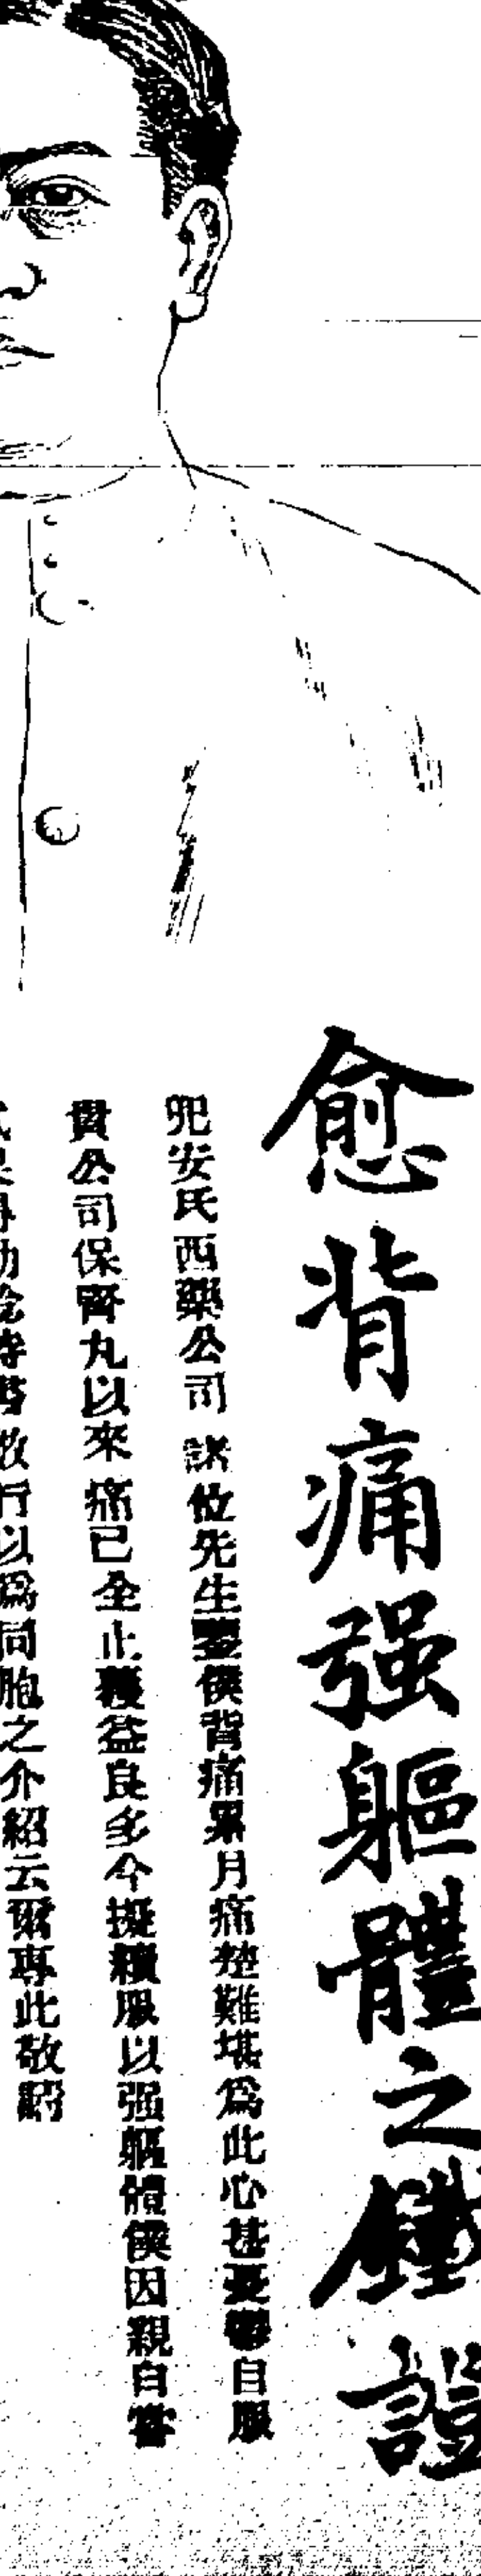 愈背痛强軀體之鐵證
兜安氏西藥公司 諸位先生鑒僕背痛累月痛楚難堪爲此心甚憂鬱自服
貴公司保腎丸以來痛已全止獲益良多今擬續服以强軀體僕因親自嘗
行以爲同胞之介紹云爾專此敬